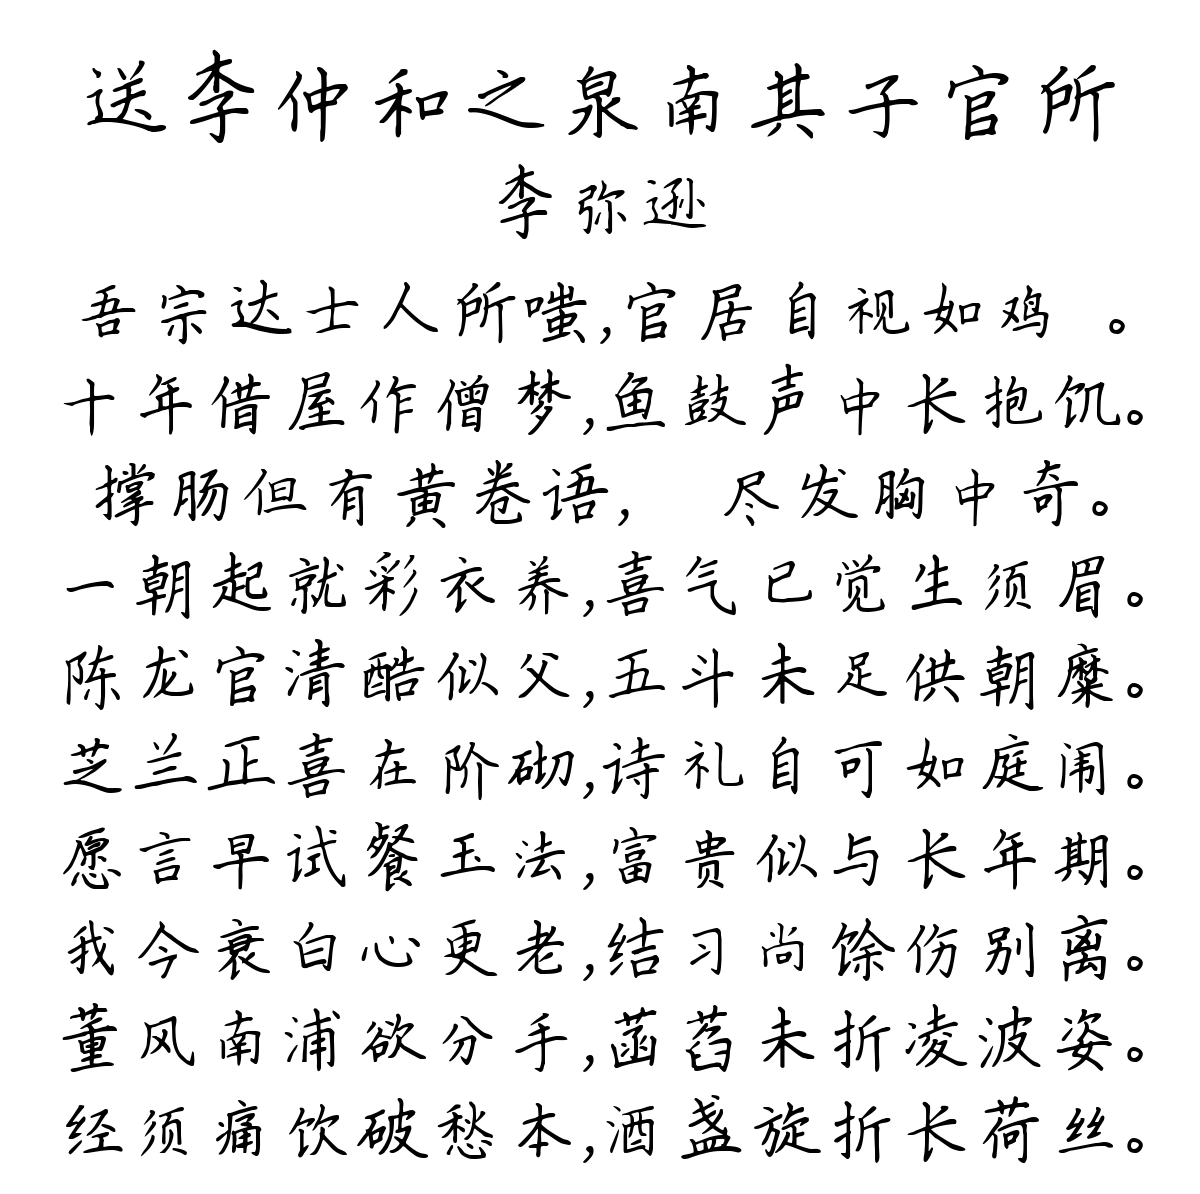 送李仲和之泉南其子官所
李弥逊
吾宗达士人所嗤,官居自视如鸡 。
十年借屋作僧梦,鱼鼓声中长抱饥。
撑肠但有黄卷语, 尽发胸中奇。
一朝起就彩衣养,喜气已觉生须眉。
陈龙官清酷似父,五斗未足供朝糜。
芝兰正喜在阶砌,诗礼自可如庭闱。
愿言早试餐玉法,富贵似与长年期。
我今衰白心更老,结习尚馀伤别离。
董风南浦欲分手,菡萏未折凌波姿。
经须痛饮破愁本,酒盏旋折长荷丝。